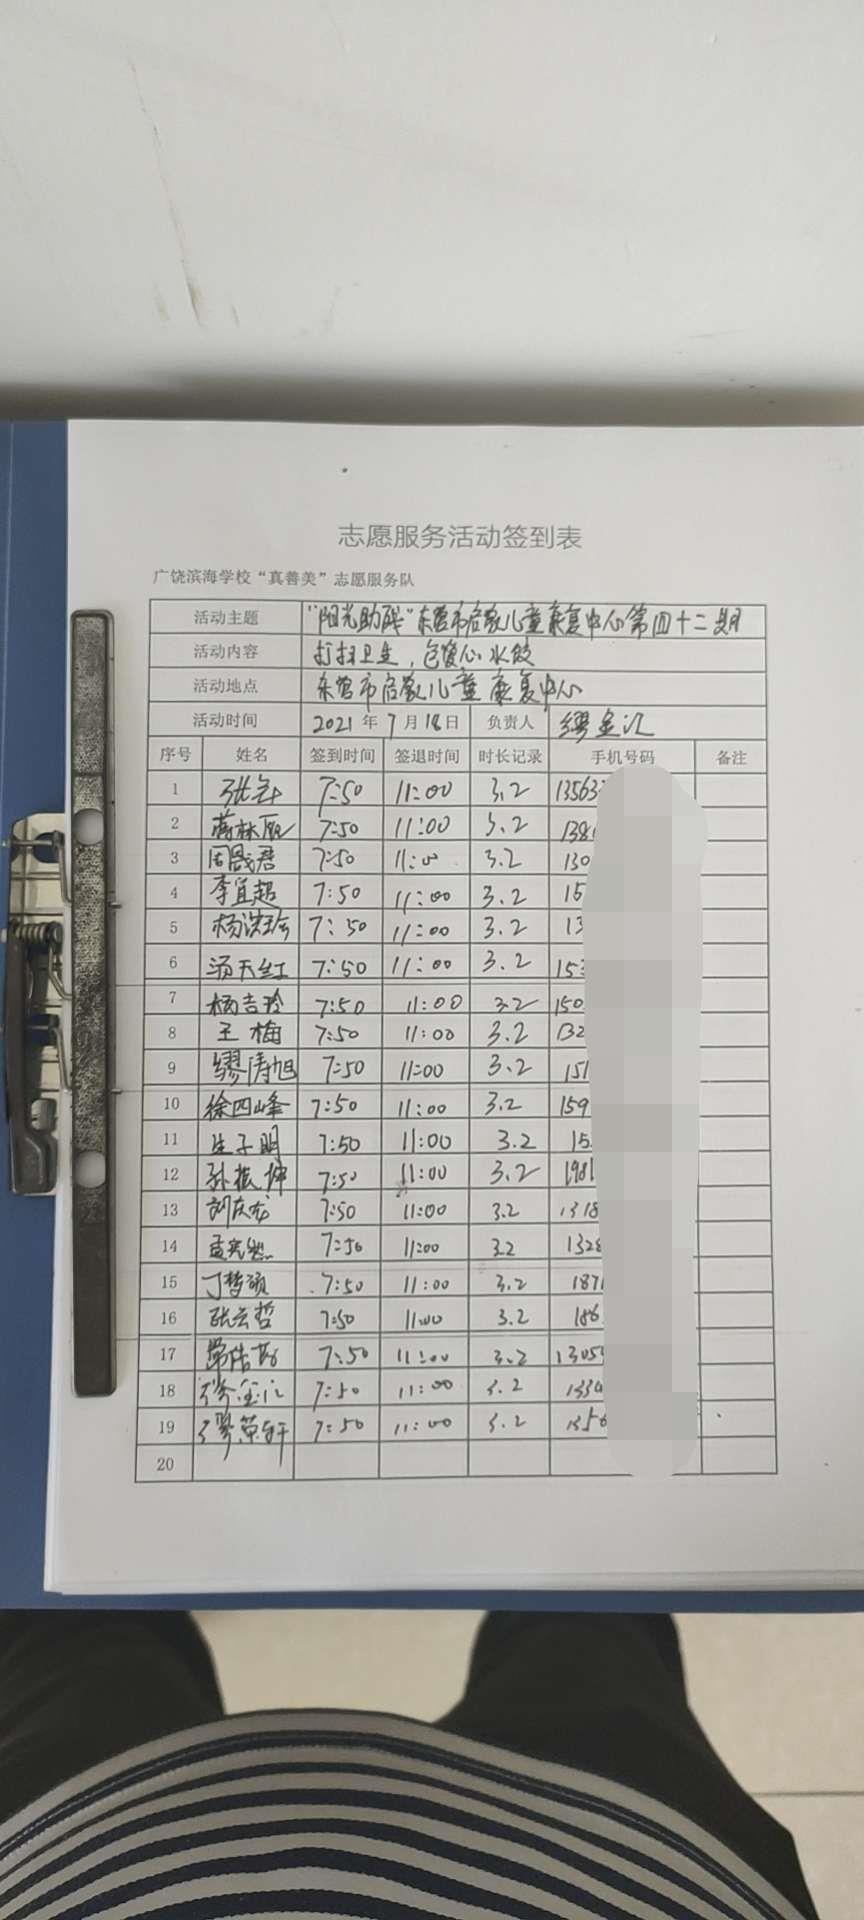 志愿服务活动签到表
广饶滨海学校“真善美”志愿服务队
活动主题 “阳光助残”东营市启蒙儿童康复中心第四十二期
活动内容 打扫卫生，包爱心水饺
活动地点 东营市启蒙儿童康复中心
活动时间 2021年7月18日 负责人 缪金汇
序号 姓名 签到时间 签退时间 时长记录 手机号码 备注
1 7:50 11:00 3.2 13563
2 蒋林 7:50 11:00 3.2 138
3 周晟君 7:50 11:00 3.2 130
4 李宜超 7:50 11:00 3.2 15
5 杨洪玲 7:50 11:00 3.2 13
6 汤天红 7:50 11:00 3.2 153
7 杨吉玲 7:50 11:00 3.2 150
8 王梅 7:50 11:00 3.2 132
9 缪涛旭 7:50 11:00 3.2 151
10 徐四峰 7:50 11:00 3.2 159
11 生子明 7:50 11:00 3.2 15
12 孙振坤 7:50 11:00 3.2 1981
13 刘庆龙 7:50 11:00 3.2 1318
14 孟宪 7:50 11:00 3.2 1328
15 丁梦硕 7:50 11:00 3.2 1871
16 张云哲 7:50 11:00 3.2 186
17 7:50 11:00 3.2 1305
18 缪金汇 7:50 11:00 3.2 133
19 缪荣轩 7:50 11:00 3.2 1356
20